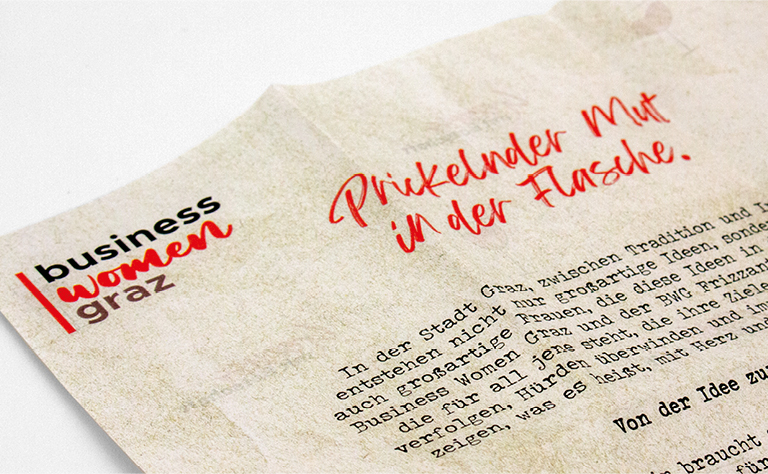 business
women
graz
Prickelnder Mut
in der Flasche.
In der Stadt Graz, zwischen Tradition und
entstehen nicht nur großartige Ideen,
auch großartige Frauen, die diese Ideen in
Business Women Graz und der BWG
die für all jene steht, die ihre Ziele
verfolgen, Hürden überwinden und
zeigen, was es heißt, mit Herz und
Von der Idee
braucht